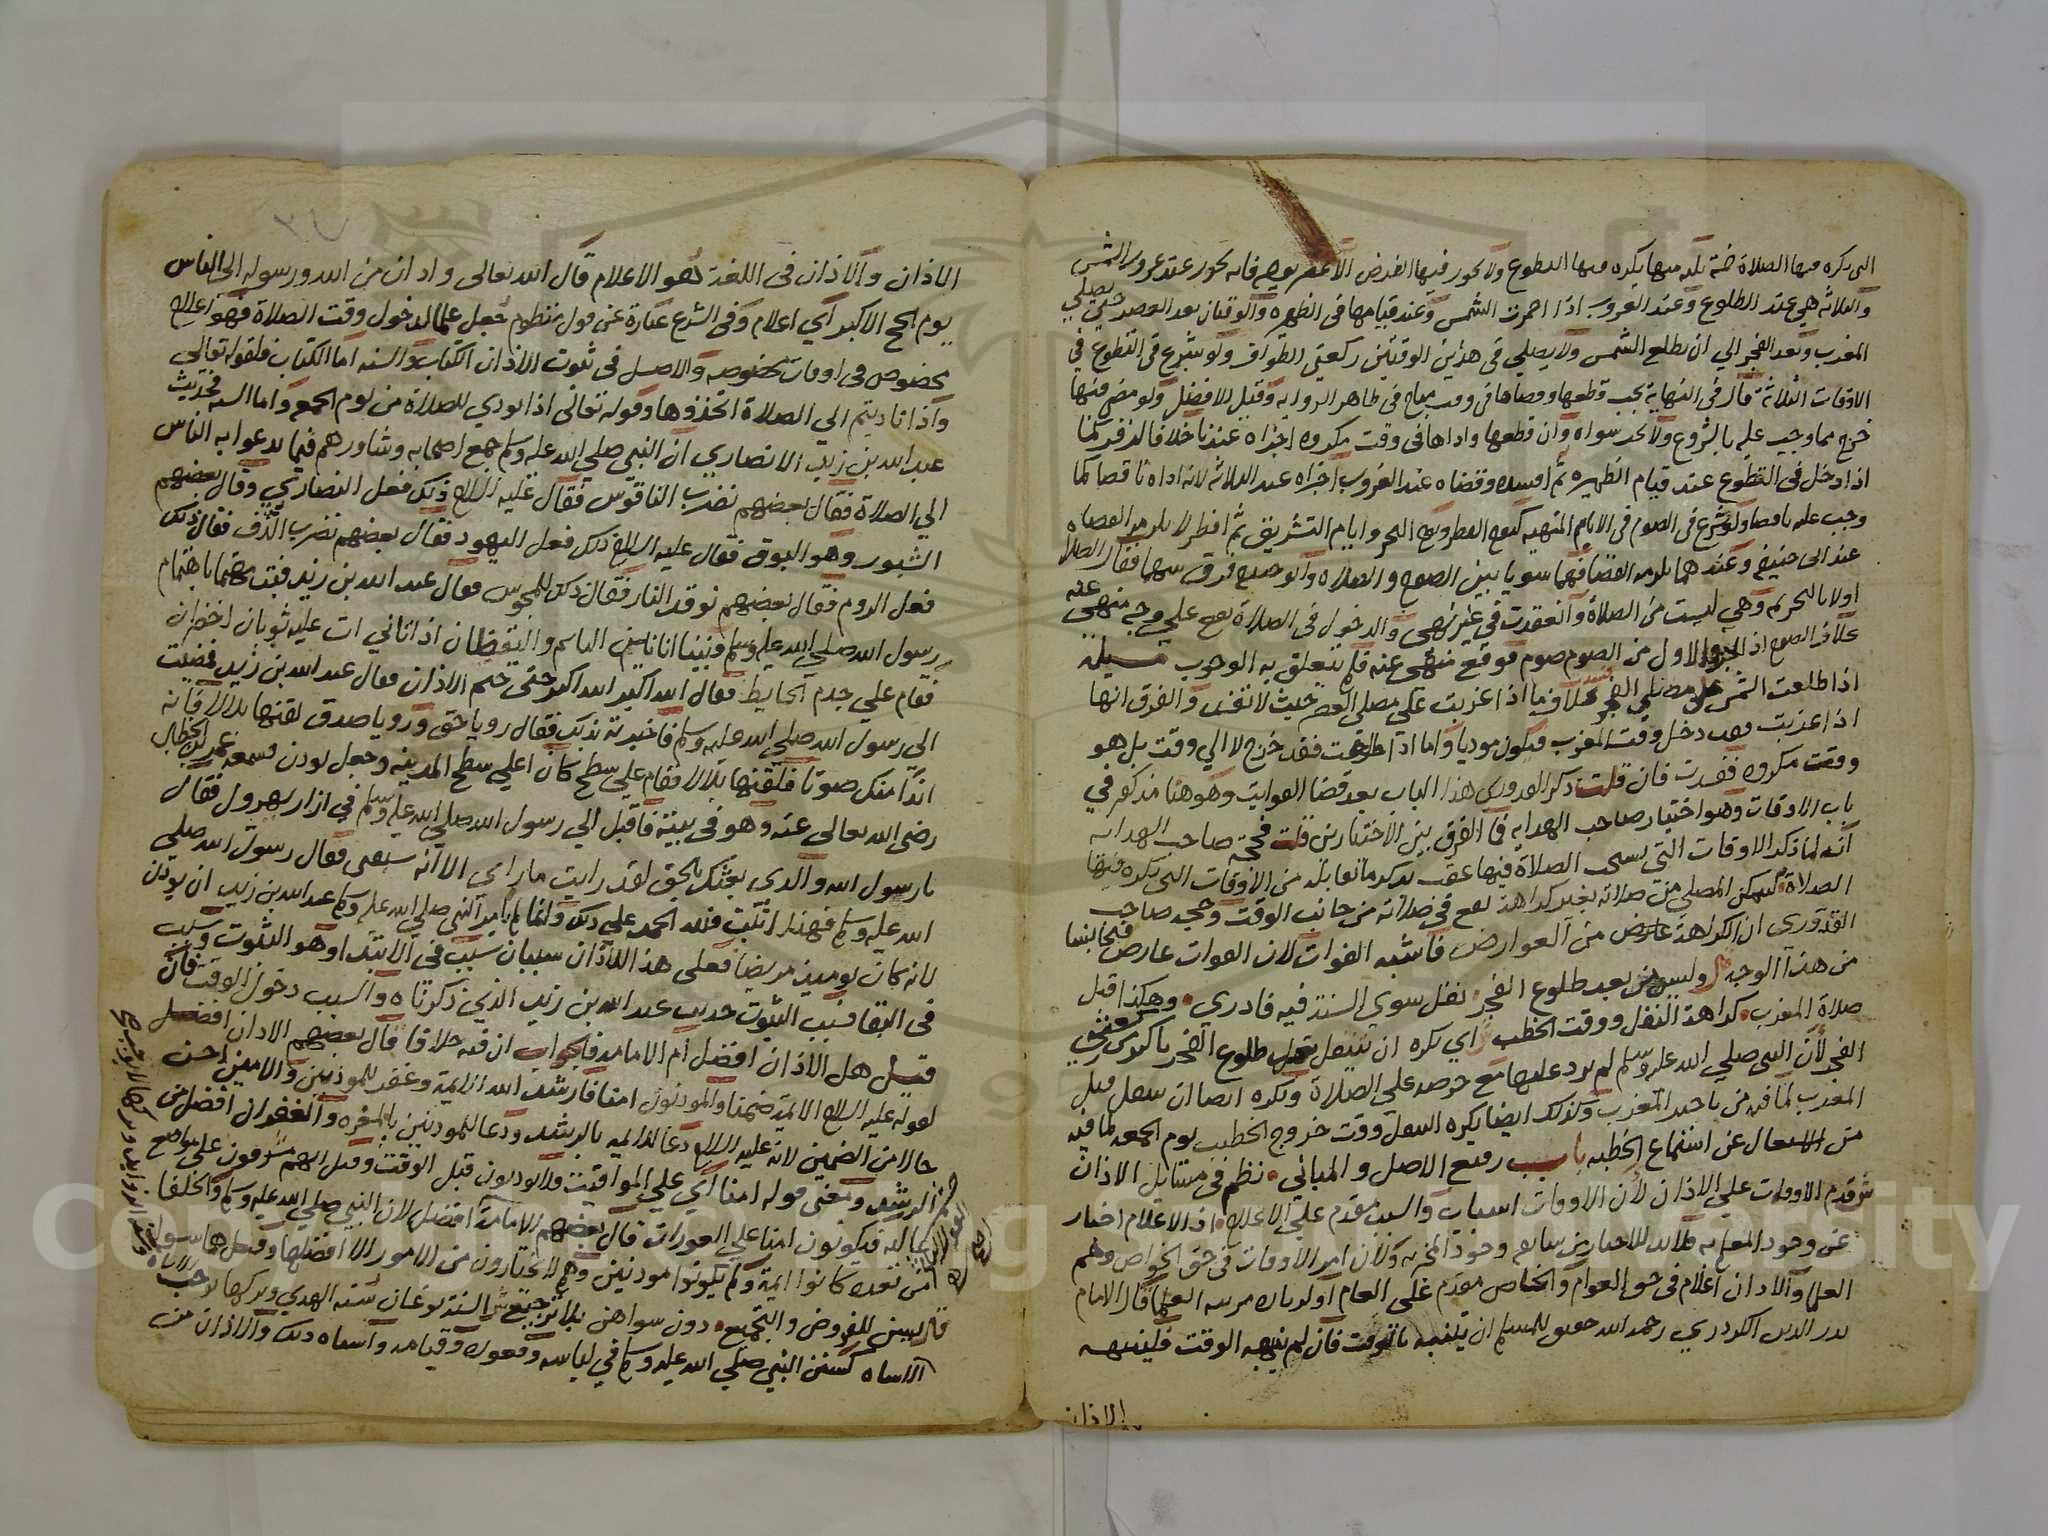 التى يكره فيها الصلاة خمسة ثلاثة منها يكره فيها التطوع ولا يجوز فيها الفرض الا عصر يومه فانه يجوز عند غروب الشمس
والثلاثة هي عند الطلوع وعند الغروب اذا احمرت الشمس وعند قيامها في الظهيرة والوقتان بعد العصر حتى يصلي
المغرب وبعد الفجر الي ان تطلع الشمس ولا يصلي في هذين الوقتين ركعتي الطواف ولو شرع في التطوع في
الاوقات الثلاثة قال في النهاية يجب قطعها وقضاها في وقت مباح في ظاهر الرواية وقيل الافضل ولو مضى فيها
خرج مما وجب عليه بالشروع ولا يجب سواه وان قطعها واداها في وقت مكروه اجزاه عندنا خلافا لزفر كما
اذا دخل في التطوع عند قيام الظهيرة ثم افسده وقضاه عند الغروب اجزاه عند الثلاثة لانه اداه ناقصا كما
وجب عليه ناقصا ولو شرع في الصوم في الايام المنهية كيوم الفطر ويوم النحر وايام التشريق ثم افطر لا يلزمه القضاء
عند ابي حنيفة وعندهما يلزمه القضا فهما سويا بين الصوم والصلاة وابو حنيفة فرق بينهما فقال الصلاة
اولا بالتحريم وهي ليست من الصلاة وانعقدت في غير نهي والدخول في الصلاة يقع علي وجه منهي عنه
بخلاف الصوم اذ الجزء الاول من الصوم صوم فوقع منهي عنه فلم يتعلق به الوجوب مسئلة
اذا طلعت الشمس على مصلي الفجر تفسد بخلاف ما اذا غربت علي مصلي العصر حيث لا تفسد والفرق انها
اذا غربت فقد دخل وقت المغرب فيكون موديا واما اذا طلعت فقد خرج لا الي وقت بل هو
وقت مكروه ففسدت فان قلت ذكر القدوري هذا الباب بعد قضا الفوايت وهو هنا مذكور في
باب الاوقات وهو اختيار صاحب الهداية فما الفرق بين الاختيارين قلت فحجة صاحب الهداية
انه لما ذكر الاوقات التي يستحب الصلاة فيها عقب بذكر ما يقابله من الاوقات التي يكره فيها
الصلاة ليتمكن المصلي من صلاته بغير كراهة تقع في صلاته من جانب الوقت وحجة صاحب
القدوري ان الكراهة عارض من العوارض فاشبه الفوات لان الفوات عارض فتجانسا
من هذا الوجه ص وليس بعد طلوع الفجر نفل سوى السنة فيه فادري وهكذا قبل
صلاة المغرب كراهة النفل ووقت الخطب ش اي يكره ان يتنفل بعد طلوع الفجر باكثر من سنتي
الفجر لان النبي صلي الله عليه وسلم لم يزد عليها مع حرصه على الصلاة ويكره ايضا ان يتنفل قبل
المغرب لما فيه من تاخير المغرب وكذلك ايضا يكره التنفل وقت خروج الخطيب يوم الجمعة لما فيه
من الاشتغال عن استماع الخطبة باب رفيع الاصل والمباني نظم في مسايل الاذان
ش قدم الاوقات علي الاذان لان الاوقات اسباب والسبب مقدم علي الاعلام اذ الاعلام اخبار
عن وجود المعلم به فلا بد للاخبار من سابقة وجود المخبر به ولان امر الاوقات في حق الخواص وهم
العلما والاذان اعلام في حق العوام والخاص مقدم على العام اولزيادة مرتبة العلما قال الامام
بدر الدين الكردري رحمه الله حقيق للمسلم ان يتنبه بالوقت فان لم ينبهه الوقت فلينبهه
الاذان
الاذان والاذان في اللغة هو الاعلام قال الله تعالى واذان من الله ورسوله الى الناس
يوم الحج الاكبر اي اعلام وفي الشرع عبارة عن قول منظوم جعل علما لدخول وقت الصلاة فهو اعلام
مخصوص في اوقات مخصوصة والاصل في ثبوت الاذان الكتاب والسنة اما الكتاب فلقوله تعالى
واذا ناديتم الي الصلاة اتخذوها وقوله تعالى اذا نودي للصلاة من يوم الجمعة واما السنة فحديث
عبد الله بن زيد الانصاري ان النبي صلي الله عليه وسلم جمع اصحابه وشاورهم فيما يدعوا به الناس
الي الصلاة فقال بعضهم نضرب الناقوس فقال عليه السلام ذلك فعل النصاري وقال بعضهم
الشبور وهو البوق فقال عليه السلام ذلك فعل اليهود فقال بعضهم نضرب الدف فقال ذلك
فعل الروم فقال بعضهم نوقد النار فقال ذلك للمجوس فقال عبد الله بن زيد فبت مهتما باهتمام
رسول الله صلي الله عليه وسلم فبينا انا بين النايم واليقظان اذ اتاني ات عليه ثوبان اخضران
فقام علي جدم الحايط فقال الله اكبر الله اكبر حتى ختم الاذان فقال عبد الله بن زيد فمضيت
الي رسول الله صلي الله عليه وسلم فاخبرته بذلك فقال رويا حق ورويا صدق لقنها بلالا فانه
اندا منك صوتا فلقنها بلالا فقام علي سطح كان اعلي سطح المدينة وجعل يوذن فسمعه عمر بن الخطاب
رضى الله تعالى عنه وهو في بيته فاقبل الي رسول الله صلي الله عليه وسلم في ازار يهرول فقال
يا رسول الله والذى بعثك بالحق لقد رايت ما راى الا انه سبقنى فقال رسول الله صلي
الله عليه وسلم فهذا اثبت فلله الحمد علي ذلك وانما لم يامر النبي صلي الله عليه وسلم عبد الله بن زيد ان يوذن
لانه كان يوميذ مريضا فعلى هذا للاذان سببان سبب في الابتدا وهو الثبوت وسبب
في البقا فسبب الثبوت حديث عبد الله بن زيد الذي ذكرناه والسبب دخول الوقت فان
قيل هل الاذان افضل ام الامامة فالجواب ان فيه خلافا قال بعضهم الاذان افضل
لقوله عليه السلام الايمة ضمنا والموذنون امنا فارشد الله الايمة وغفر للموذنين والامين احسن
حالا من الضمين لانه عليه السلام دعا للايمة بالرشد ودعا للموذنين بالمغفرة والغفران افضل من
الرشد ومعنى قوله امنا اي علي المواقيت فلا يوذنون قبل الوقت وقيل انهم مشرفون على مواضع
عالية فيكونون امنا علي العورات قال بعضهم الامامة افضل لان النبي صلي الله عليه وسلم والخلفا
من بعده كانوا ايمة ولم يكونوا موذنين وهم لا يختارون من الامور الا افضلها وقيل هما سواء
قال يسن للفروض والتجميع دون سواهن بلا ترجيع ش السنة نوعان سنة الهدي وتركها يوجب
الاساه كسنن النبي صلي الله عليه وسلم في لباسه وقعوده وقيامه واشباه ذلك والاذان من